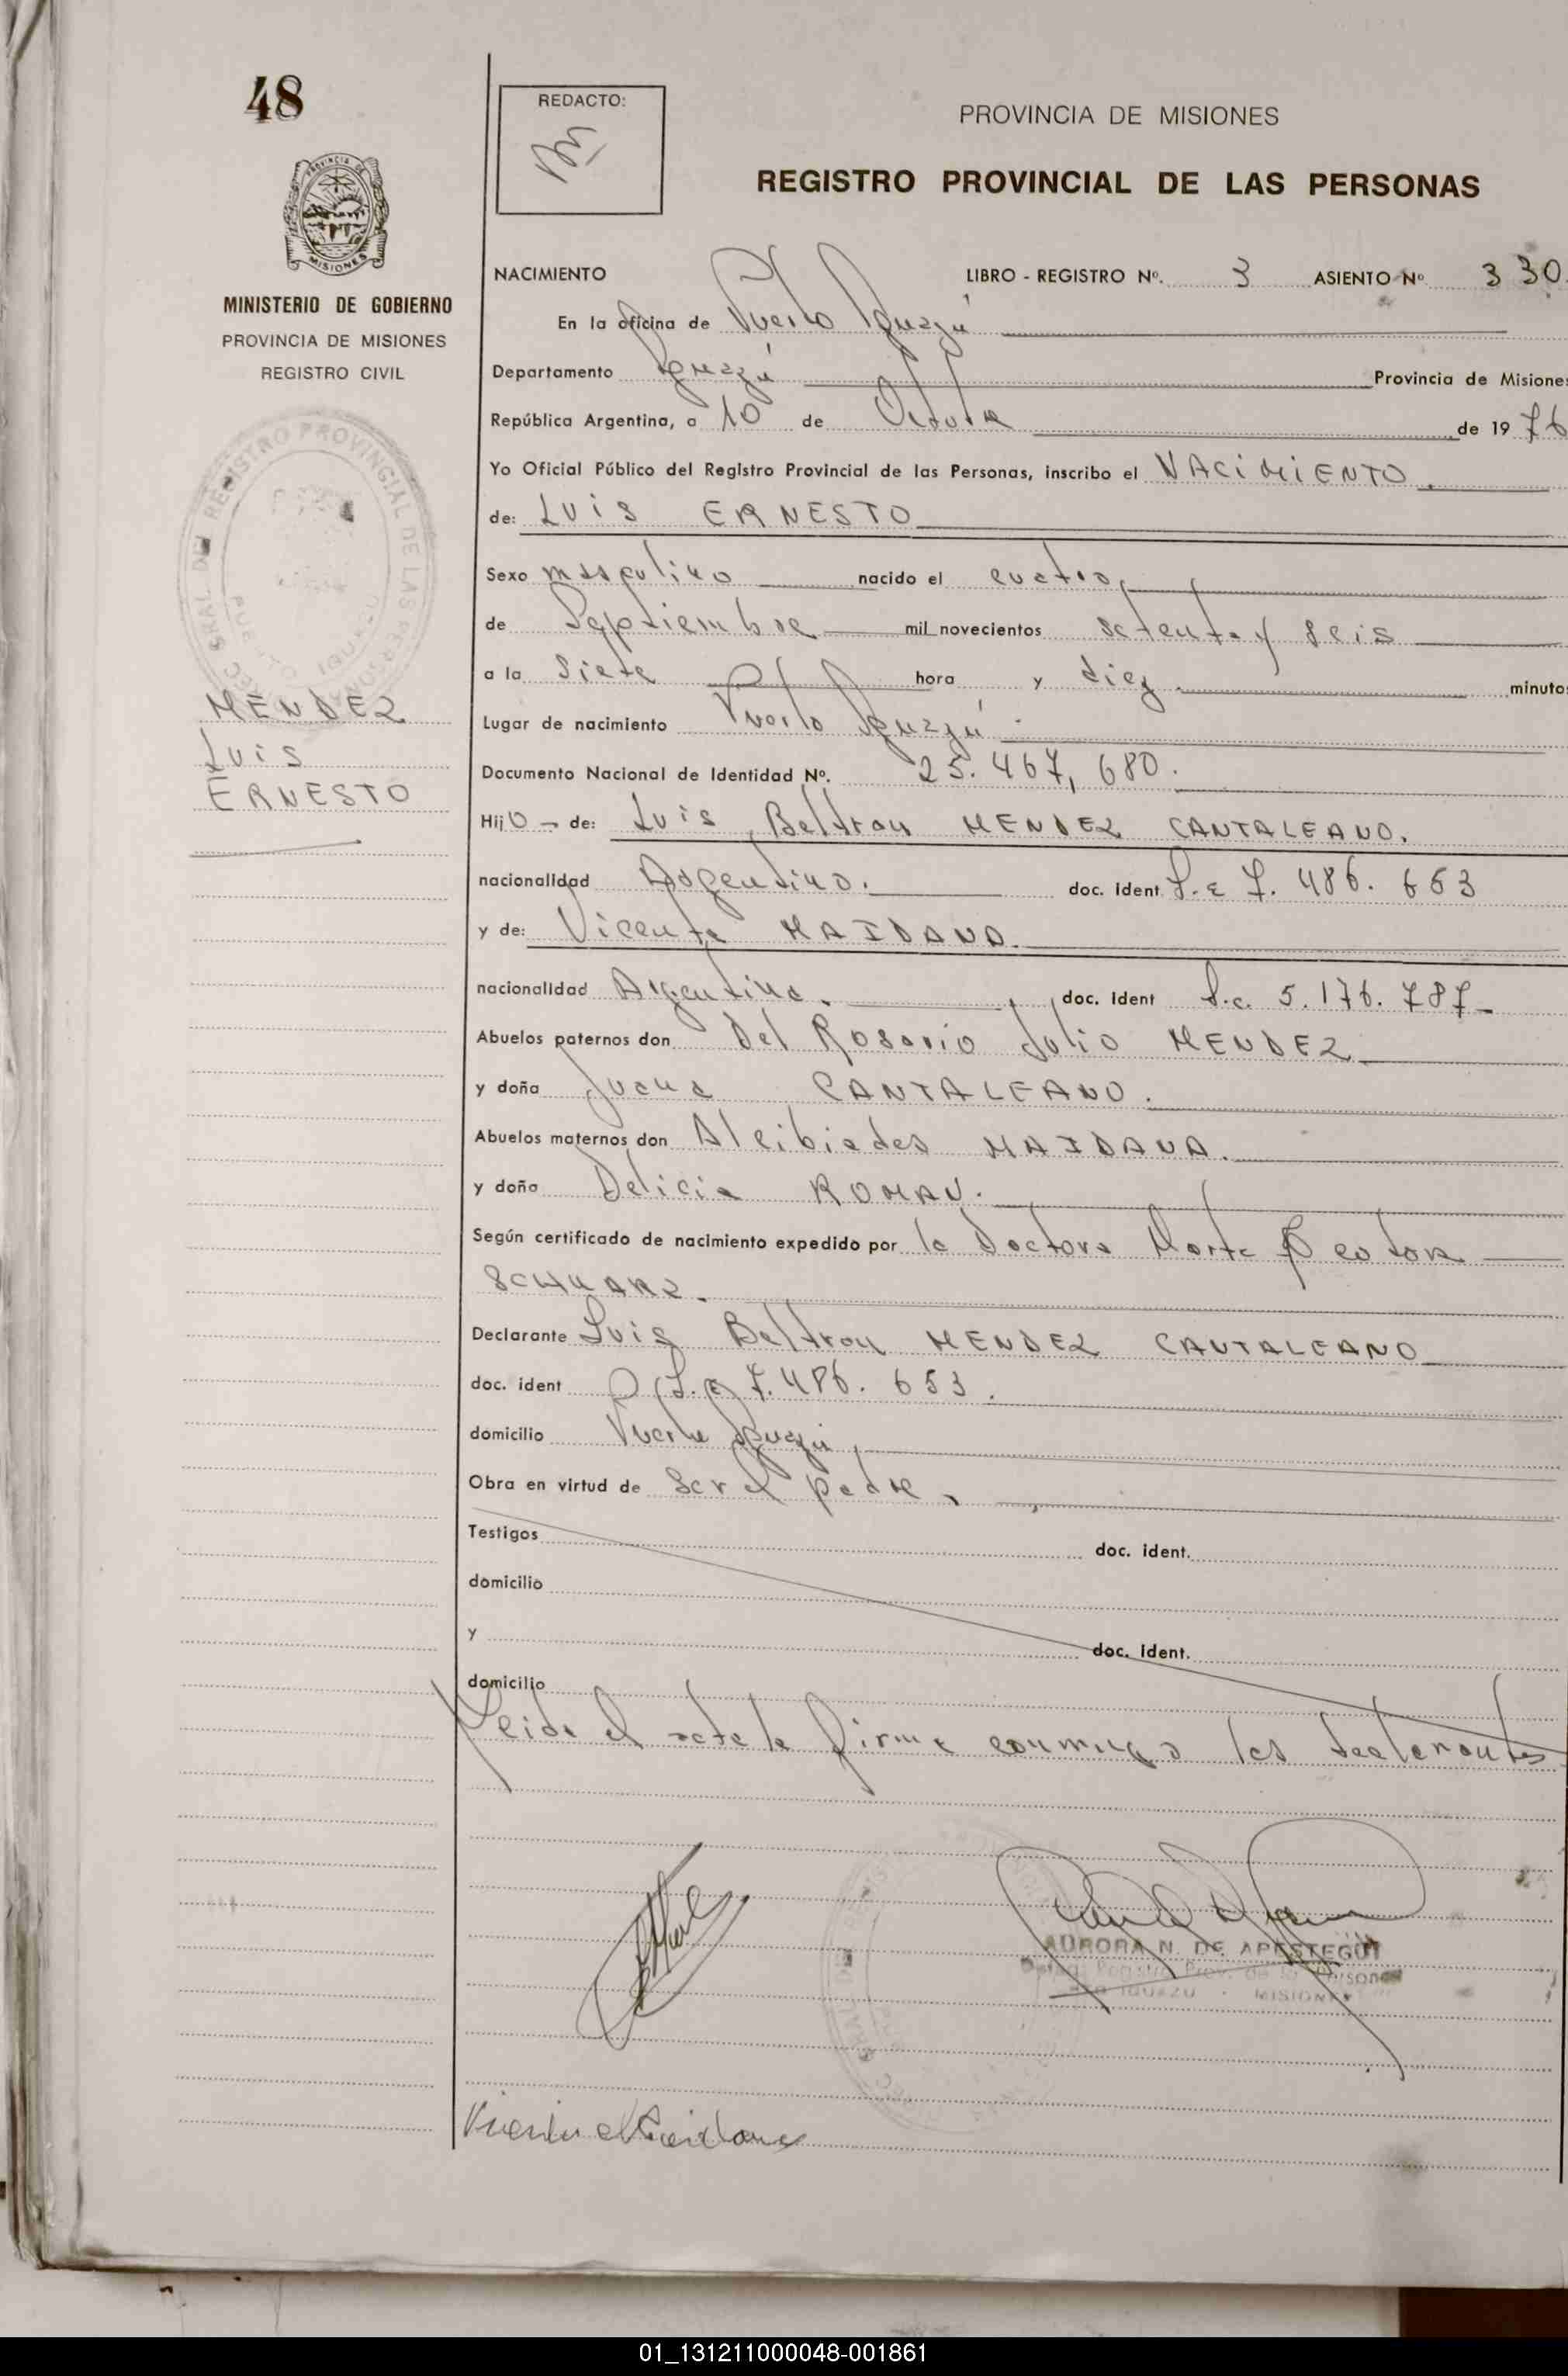 48
REDACTO:
PROVINCIA DE MISIONES
REGISTRO PROVINCIAL DE LAS PERSONAS
PROVINCIA DE
MISIONES
MINISTERIO DE GOBIERNO
PROVINCIA DE MISIONES
REGISTRO CIVIL
REGISTRO PROVINCIAL DE LAS PERSONAS
MENDEZ
Luis
ERNESTO
NACIMIENTO LIBRO - REGISTRO Nº. 3 ASIENTO Nº 330
En la oficina de Puerto Iguazú
Departamento Iguazú Provincia de Misiones
República Argentina, a 10 de Octubre de 1976
Yo Oficial Público del Registro Provincial de las Personas, inscribo el NACIMIENTO.
de: LUIS ERNESTO
Sexo masculino nacido el cuatro,
de Septiembre mil novecientos setenta y seis
a la siete hora y diez minutos
Lugar de nacimiento Puerto Iguazú.
Documento Nacional de Identidad Nº. 25.467,680.
Hij o - de: Luis Beltran MENDEZ CANTALEANO.
nacionalidad Argentino. doc. ident L.E 7.486.653
y de: Vicenta MAIDANA.
nacionalidad Argentina. doc. ident L.c. 5.176.787-
Abuelos paternos don Del Rosario Julio MENDEZ
y doña Juana CANTALEANO.
Abuelos maternos don Alcibiades MAIDANA.
y doña Delicia ROMAN.
Según certificado de nacimiento expedido por la Doctora Marta
SCHWARZ.
Declarante Luis Beltran MENDEZ CANTALEANO
doc. ident L.E 7.486.653.
domicilio Puerto Iguazú,
Obra en virtud de ser el padre.
Testigos doc. ident.
domicilio
y doc. ident.
domicilio
Leida el acta la firma conmigo los declarantes
AURORA N. DE APESTEGUI
Registro Prov. de las Personas
IGUAZU - MISIONES
Vicenta Maidana
01_131211000048-001861